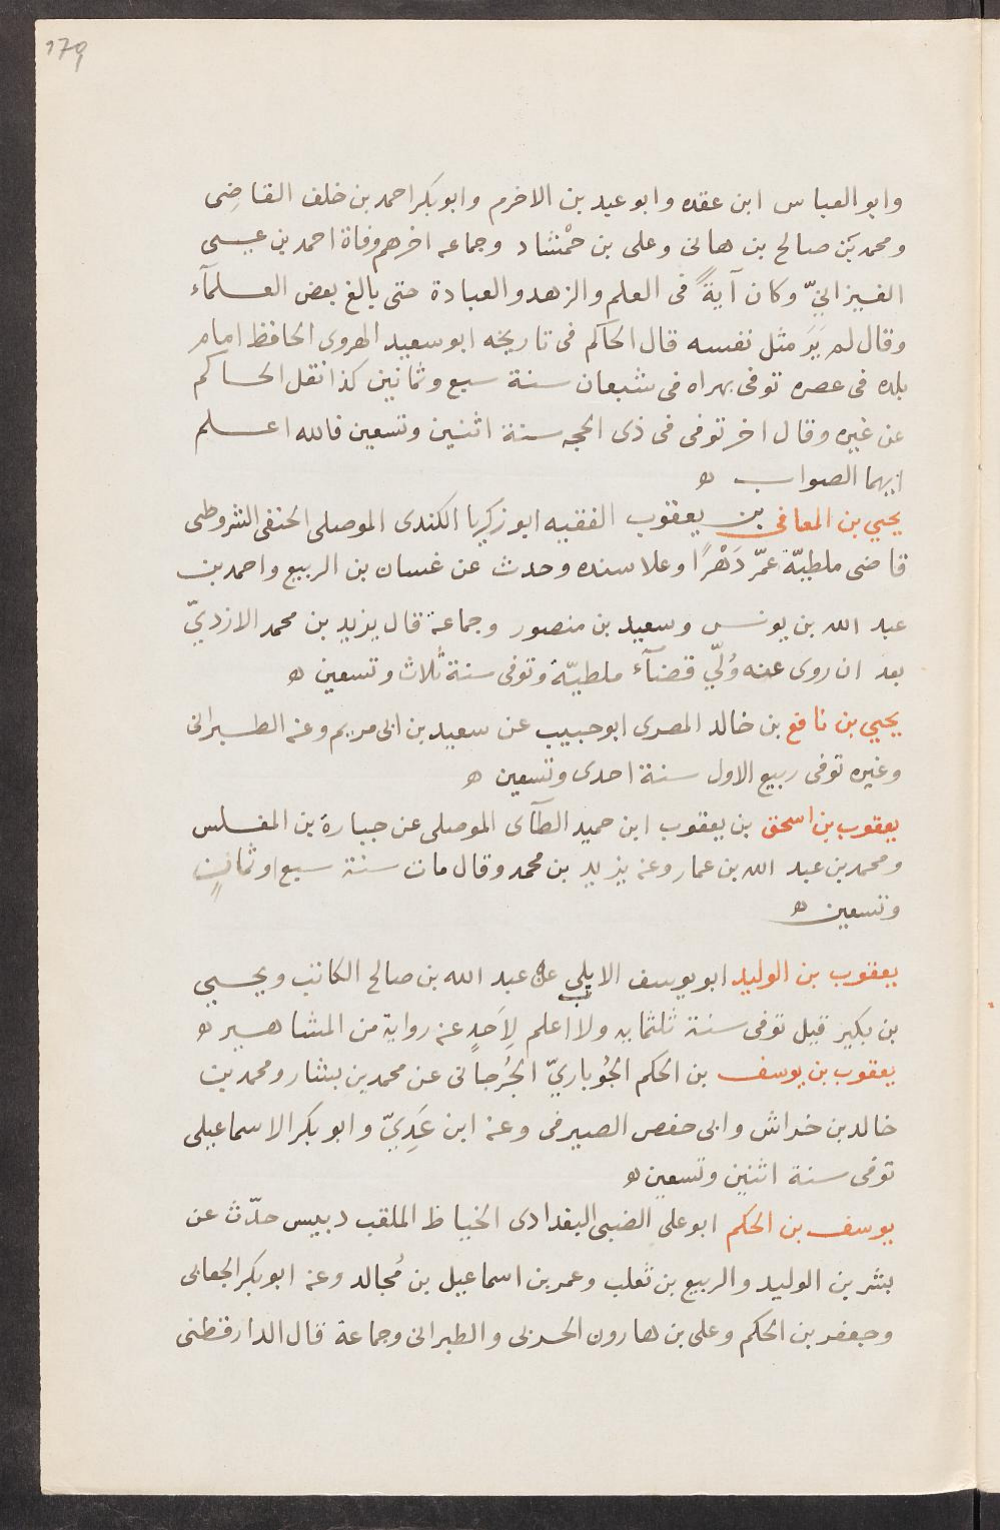 179
وابو العباس ابن عقده وابو عبد بن الاخرم وابو بكر احمد بن خلف القاضِى
ومحمد بَن صالح بن هانى وعلى بن حمْشاد وجماعه اخرهم وفاة احمد بن عيسى
الغيزانىّ وكان آيةً فى العلم والزهد والعبادة حتى بالغ بعض العلمآء
وقال لم يَرَ مثل نفسه قال الحاكم فى تاريخه ابو سعيد الهروى الحافظ امام
بلده فى عصره توفى بهراه فى شبعان سنة سبع وثمانين كذا نقل الحاكم
عن غيره وقال اخر توفى فى ذى الحجه سنة اثنين وتسعين فالله اعلم
ايهما الصواب ه
يحيي بن المعافى بن يعقوب الفقيه ابو زكريا الكندى الموصلى الحنفى الشروطى
قاضى ملطيّة عمّر دَهْرًا وعلا سنده وحدث عن غسان بن الربيع واحمد بن
عبد الله بن يونس وسعيد بن منصور وجماعة قال يزيد بن محمد الازدىّ
بعد ان روى عنه وُلّي قضآء ملطيّة وتوفى سنة ثلاث وتسعين ه
يحيي بن نافع بن خالد المصرى ابو حبيب عن سعيد بن ابى مريم وعنه الطبرانى
وغيره توفى ربيع الاول سنة احدى وتسعين ه
يعقوب بن اسحق بن يعقوب ابن حميد الطآى الموصلى عن جبارة بن المغلس
ومحمد بن عبد الله بن عمار وعنه يزيد بن محمد وقال مات سنة سبع او ثمانٍ
وتسعين ه
يعقوب بن الوليد ابو يوسف الايلي عن عبد الله بن صالح الكاتب ويحيي
بن بكير قيل توفى سنة ثلثمايه ولا اعلم لِاَحَدٍ عنه رواية من المشاهير ه
يعقوب بن يوسف بن الحكم الجُوباريّ الجُرجانى عن محمد بن بشار ومحمد بن
خالد بن خداش وابى حفص الصيرفى وعنه ابن عَدِيّ وابو بكر الاسماعيلى
توفى سنة اثنين وتسعين ه
يوسف بن الحكم ابو على الضبى البغدادى الخياط الملقب دبيس حدّث عن
بشر بن الوليد والربيع بن ثعلب وعمر بن اسماعيل بن مُجالد وعنه ابو بكر الجعابى
وجعفر بن الحكم وعلى بن هارون الحربى والطبرانى وجماعة قال الدارقطنى